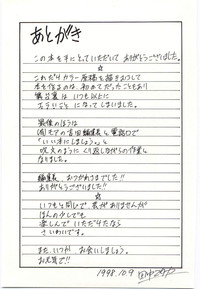 あとがき
この本を手にとっていただいて ありがとうございました。
☆
これだけカラー原稿を描きおろして
本を作るのは、初めてだったこともあり
舞台裏は いつも以上に
大さわぎに なってしまいました。
最後のほうは
編集長と電話口で
「いい本にしましょう。」と
呪文のように くり返しながらの作業と
なりました。
編集長、おつかれさまでした!!
ありがとうございました!!
☆
いつもと同じで 芸がありませんが
ほんの少しでも
楽しんで いただけたなら
さいわいです。
また いつか お会いしましょう。
お元気で!!
1998.10.9